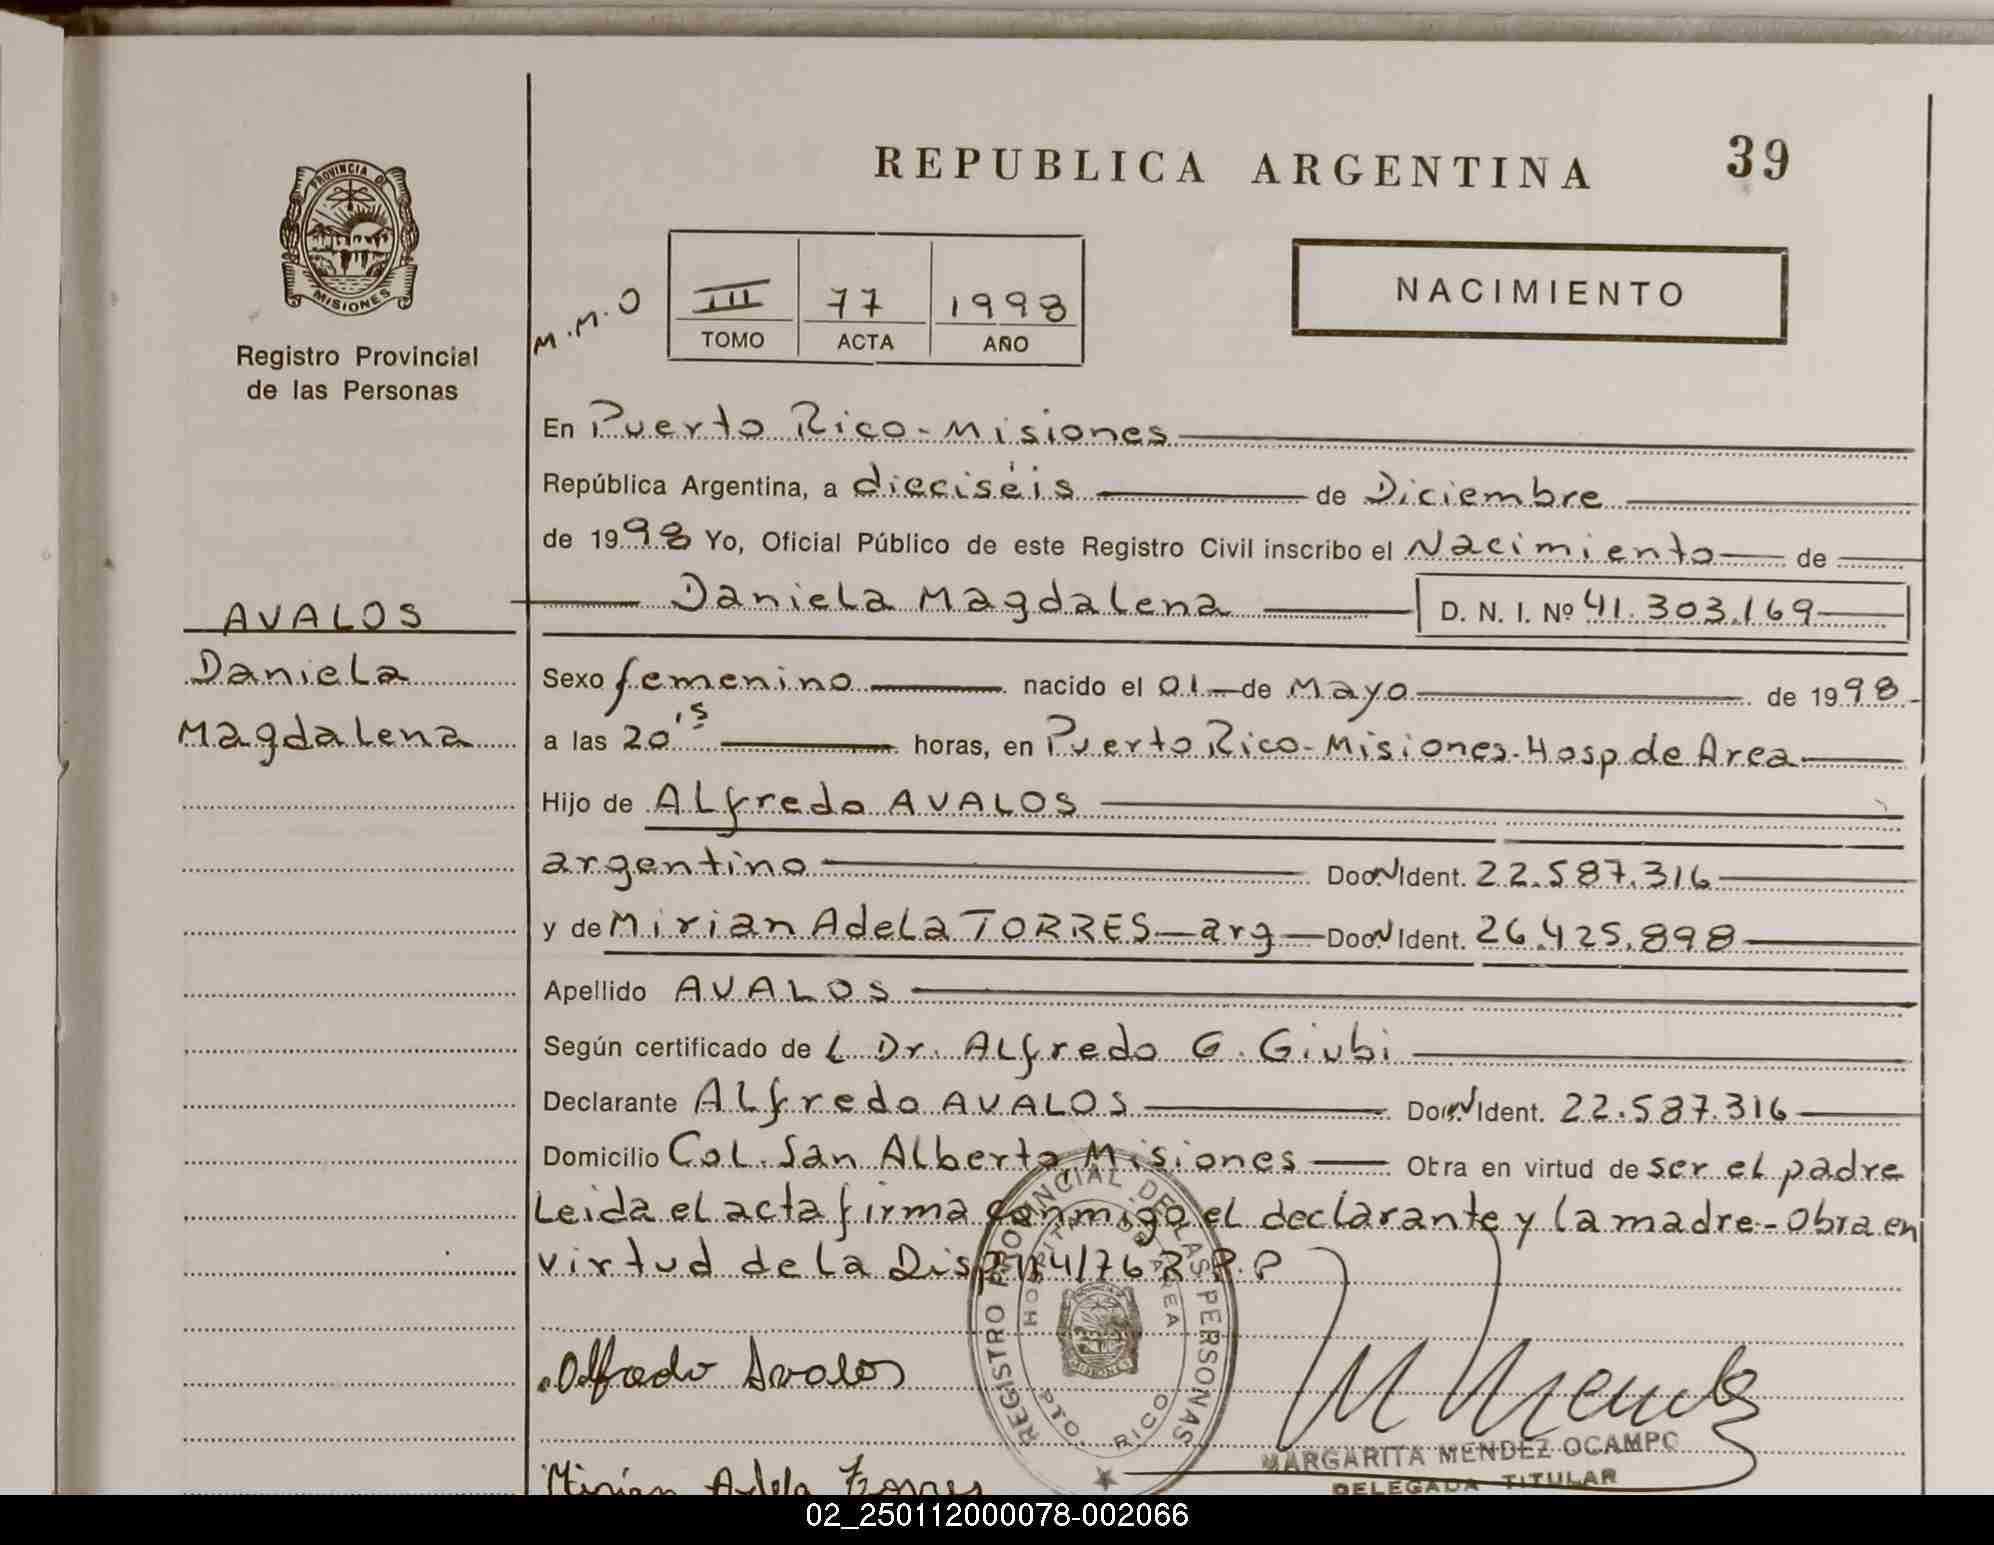 REPUBLICA ARGENTINA
39
PROVINCIA DE
MISIONES
Registro Provincial
de las Personas
M.M.O
III 77 1998
TOMO ACTA AÑO
NACIMIENTO
En Puerto Rico-Misiones
República Argentina, a dieciséis de Diciembre
de 1998 Yo, Oficial Público de este Registro Civil inscribo el Nacimiento de
Daniela Magdalena D. N. I. Nº 41.303.169
AVALOS
Daniela
Magdalena
Sexo femenino nacido el 01 de Mayo de 1998
a las 20,s horas, en Puerto Rico-Misiones-Hosp de Area
Hijo de Alfredo AVALOS
argentino Doc. N Ident. 22.587.316
y de Mirian Adela TORRES-arg-Doc. N Ident. 26.425.898
Apellido AVALOS
Según certificado de L Dr. Alfredo G. Giubi
Declarante Alfredo AVALOS Doc. N Ident. 22.587.316
Domicilio Col. San Alberto, Misiones Obra en virtud de ser el padre
Leida el acta firma conmigo el declarante y la madre-Obra en
virtud de la Disp 114/76 R.P.P
REGISTRO PROVINCIAL DE LAS PERSONAS
HOSPITAL DE AREA
MISIONES
PTO. RICO
Alfredo Avalos
M Mendez
MARGARITA MENDEZ OCAMPO
DELEGADA TITULAR
Mirian Adela Torres
02_250112000078-002066